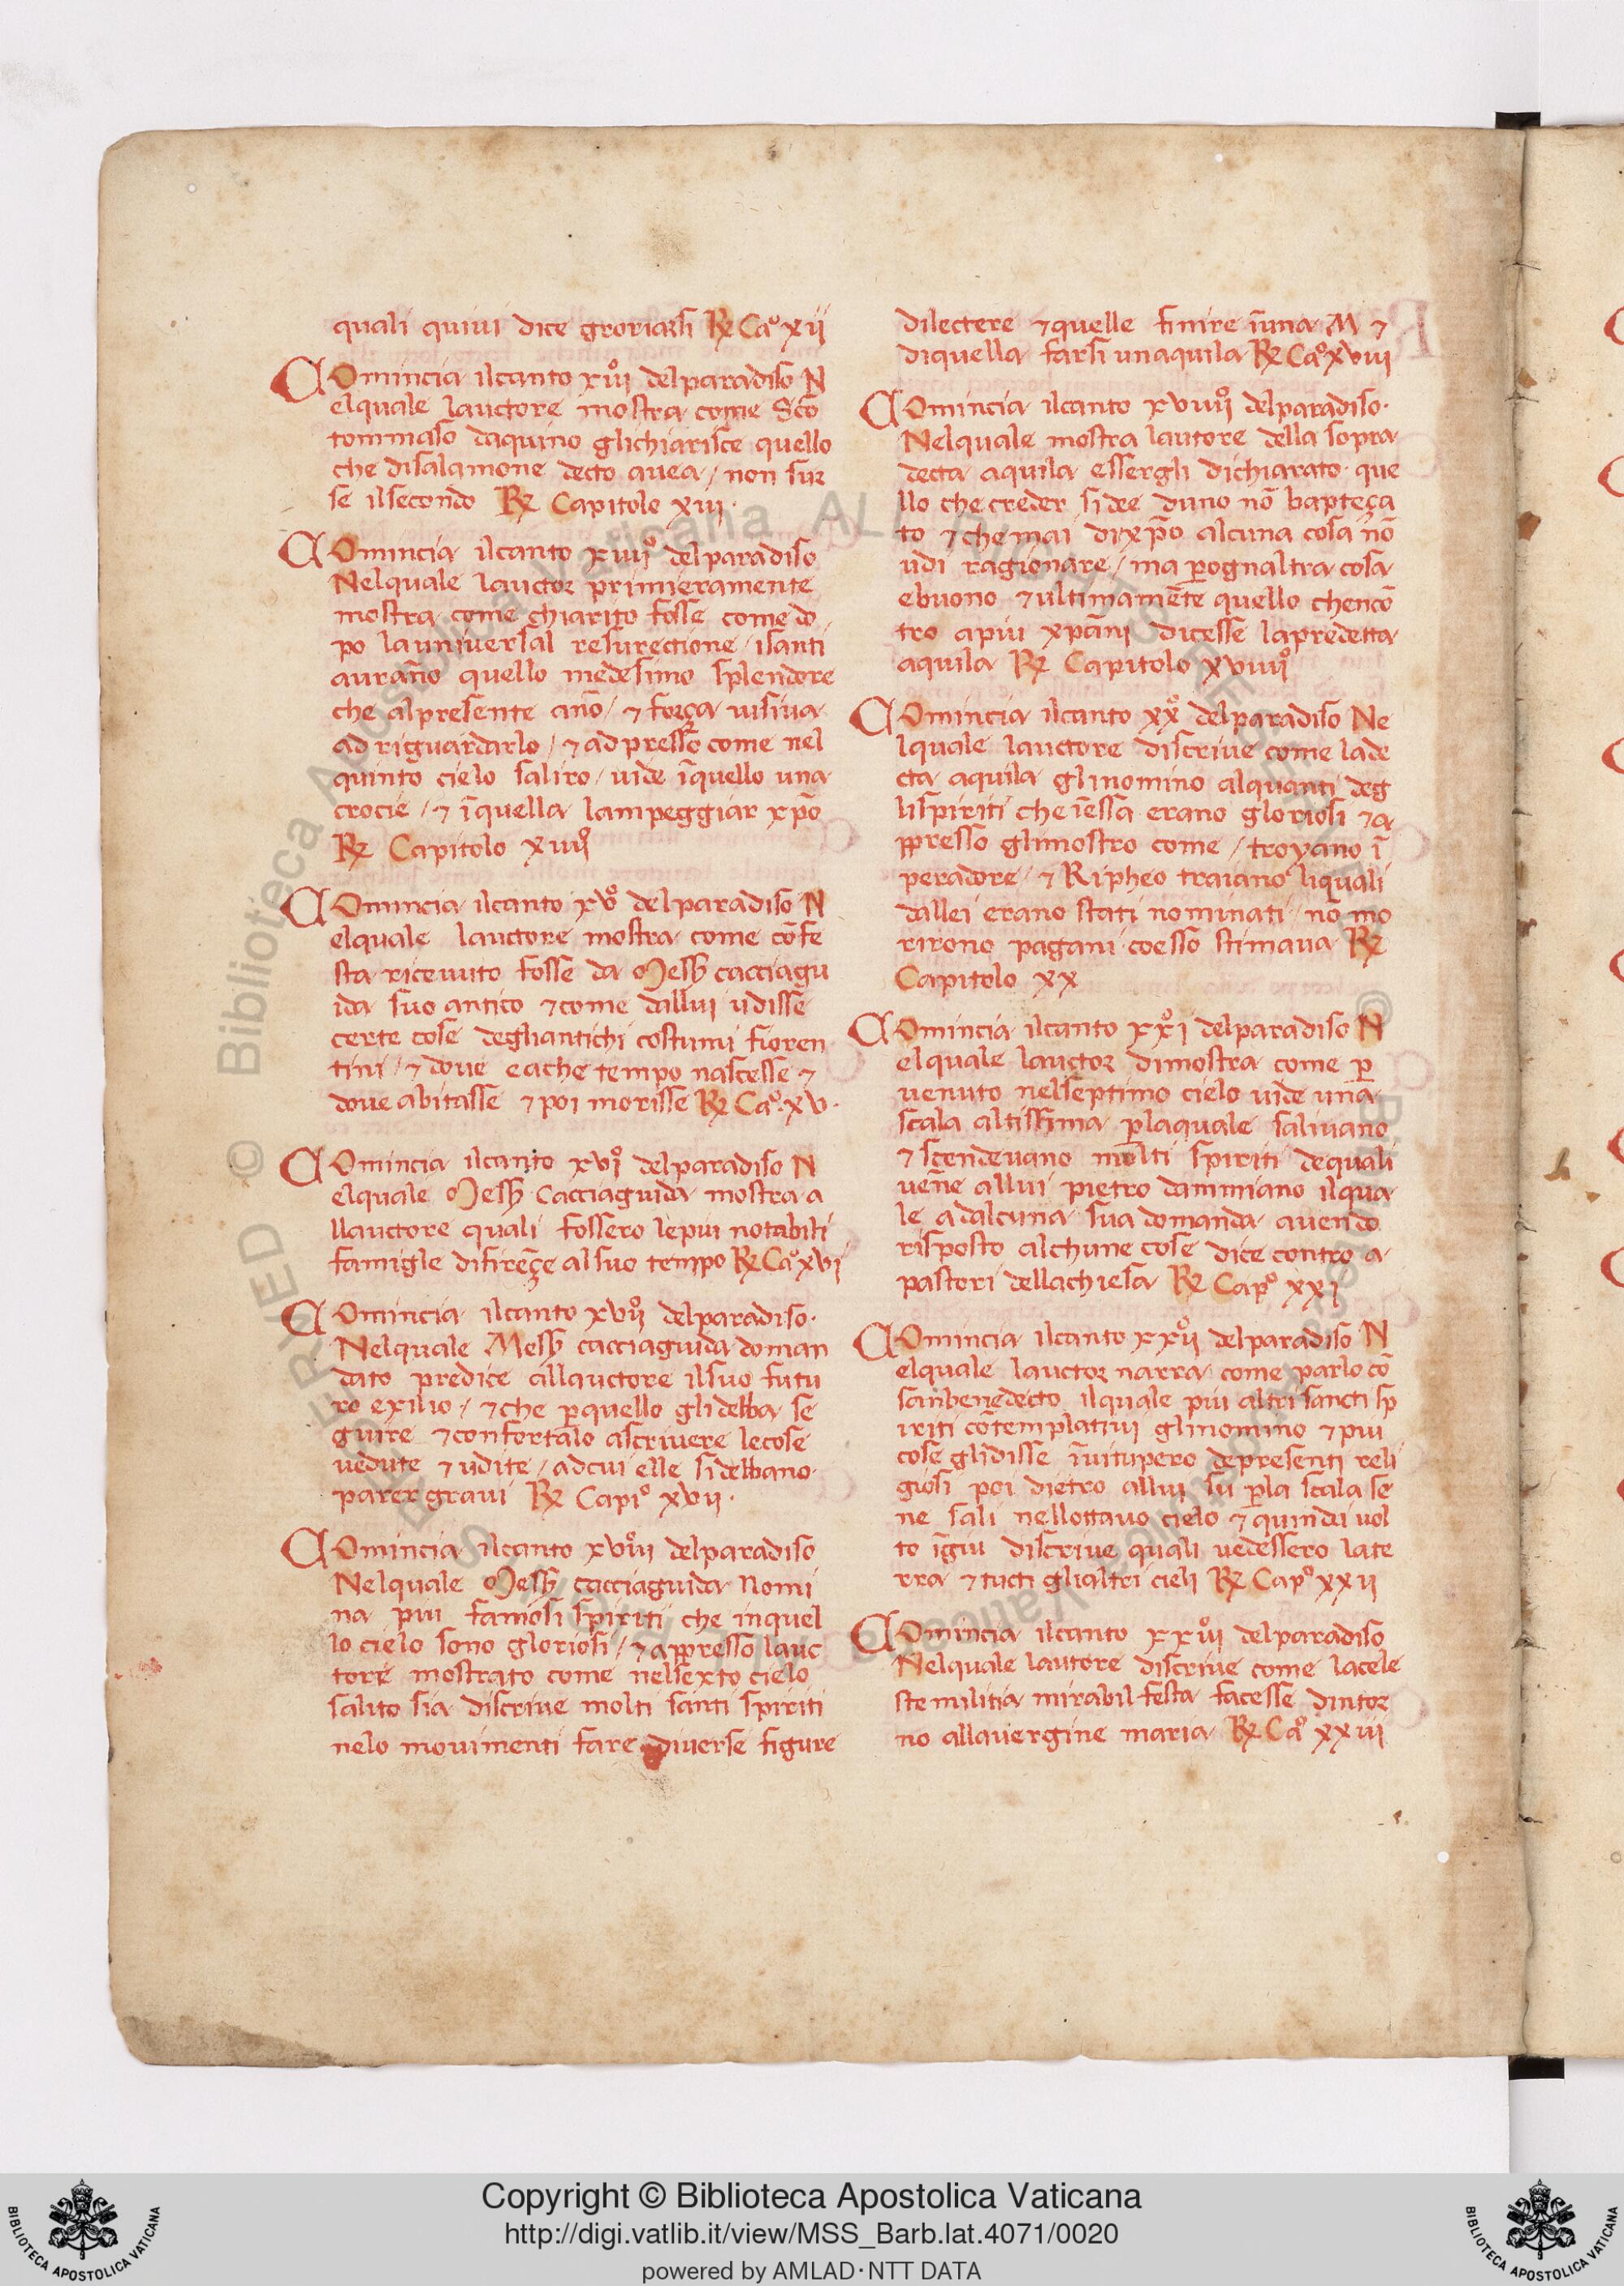 quali quiui dice groriarsi R Cao xii
Comincia ilcanto xiiio delparadiso N
elquale lauctore mostra come Scō
tommaso daquino glichiarisce quello
che disalamone decto auea / non sur
se ilsecondo R Capitolo xiii
Comincia ilcanto xiiiio delparadiso
Nelquale lauctor primieramente
mostra come chiarito fosse come do
po launiuersal resurectione / isanti
aurāno quello medesimo splendore
che alpresente āno / ⁊ força uisiua
ad riguardarlo / ⁊ ad presso come nel
quinto cielo saliro / uide īquello una
crocie / ⁊ īquella lampeggiar xp̄o
R Capitolo xiiiio
Comincia ilcanto xvo delparadiso N
elquale lauctore mostra come cōfe
sta riceuuto fosse da Mess̄ cacciagu
ida suo antico ⁊ come dallui udisse
certe cose degliantichi costumi fioren
tini / ⁊ doue eache tempo nascesse ⁊
doue abitasse ⁊ poi morisse R Cao xv
Comincia ilcanto xvio delparadiso N
elquale Mess̄ Cacciaguida mostra a
llauctore quali fossero lepiu notabili
famigle difirēçe alsuo tempo R Cao xvi
Comincia ilcanto xviio delparadiso
Nelquale Mess̄ cacciaguida doman
dato predice allauctore ilsuo futu
ro exilio / ⁊ che ꝑquello glidebba se
guire ⁊ confortalo ascriuere lecose
uedute ⁊ udite / adcui elle sidebbano
parer graui R Capio xvii
Comincia ilcanto xviiio delparadiso
Nelquale Mess̄ cacciaguida Nomi
na piu famosi spiriti che inquel
lo cielo sono gloriosi / ⁊ appresso lauc
tore mostrato come nelsexto cielo
salito sia discriue molti santi spiriti
nelo mouimenti fare diuerse figure
dilectere ⁊ quelle finire īuna M ⁊
diquella farsi unaquila R Cao xviii
Comincia ilcanto xviiiio delparadiso
Nelquale mostra lautore della sopra
decta aquila essergli dichiarato que
llo che creder sidee duno nō bapteça
to ⁊ che mai dixp̄o alcuna cosa nō
udi ragionare / ma ꝑognaltra cosa
ebuono ⁊ ultimamēte quello chencō
tro apiu xp̄ani dicesse lapredetta
aquila R Capitolo xviiiio
Comincia ilcanto xxo delparadiso Ne
lquale lauctore discriue come lade
cta aquila glinomino alquanti deg
lispiriti che īessa erano gloriosi ⁊ a
ppresso glimostro come / troyano ī
peradore / ⁊ Ripheo traiano liquali
dallei erano stati nominati / nō mo
rirono pagani coesso stimaua R
Capitolo xx
Comincia ilcanto xxio delparadiso N
elquale lauctor dimostra come ꝑ
uenuto nelseptimo cielo uide una
scala altissima ꝑlaquale saliuano
⁊ scendeuano molti spiriti dequali
uēne allui pietro dammiano ilqua
le adalcuna sua domanda auendo
risposto alchune cose dice contro a
pastori dellachiesa R Capo xxi
Comincia ilcanto xxiio delparadiso N
elquale lauctor narra come parlo cō
sanbenedecto ilquale piu altri sancti sp
iriti cōtemplatiui glinomino ⁊ piu
cose glidisse īuitupero depresenti reli
giosi poi dietro allui su ꝑla scala se
ne sali nellottauo cielo ⁊ quindi uol
to īgiu discriue quali uedessero late
rra ⁊ tucti glialtri cieli R Capo xxii
Comincia ilcanto xxiiio delparadiso
Nelquale lautore discriue come lacele
ste militia mirabil festa facesse dintor
no allauergine maria R Cao xxiii
Copyright © Biblioteca Apostolica Vaticana
http://digi.vatlib.it/view/MSS_Barb.lat.4071/0020
powered by AMLAD·NTT DATA
BIBLIOTECA APOSTOLICA VATICANA
BIBLIOTECA APOSTOLICA VATICANA